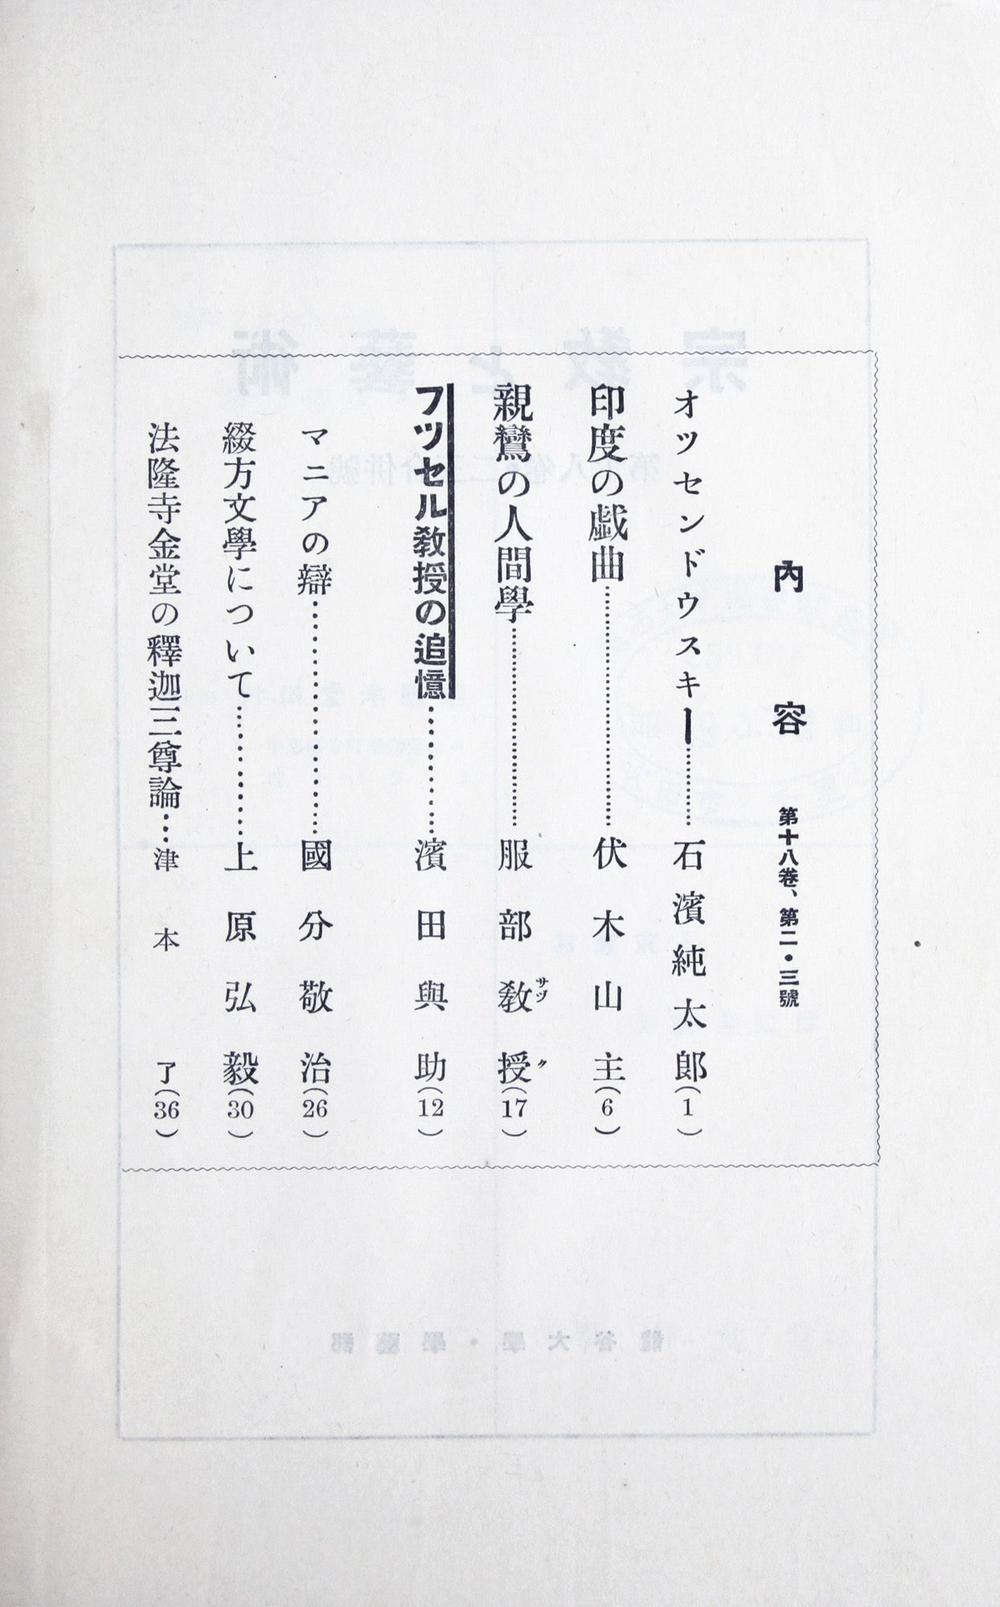 內容
第十八卷、第二・三號
オツセンドウスキー………石濱純太郎(1)
印度の戲曲………伏木山主(6)
親鸞の人間學………服部教授(17)
サツク
フツセル教授の追憶………濱田與助(12)
マニアの辯………國分敬治(26)
綴方文學について………上原弘毅(30)
法隆寺金堂の釋迦三尊論…津本了(36)
宗教と藝術
龍谷大學・學藝部